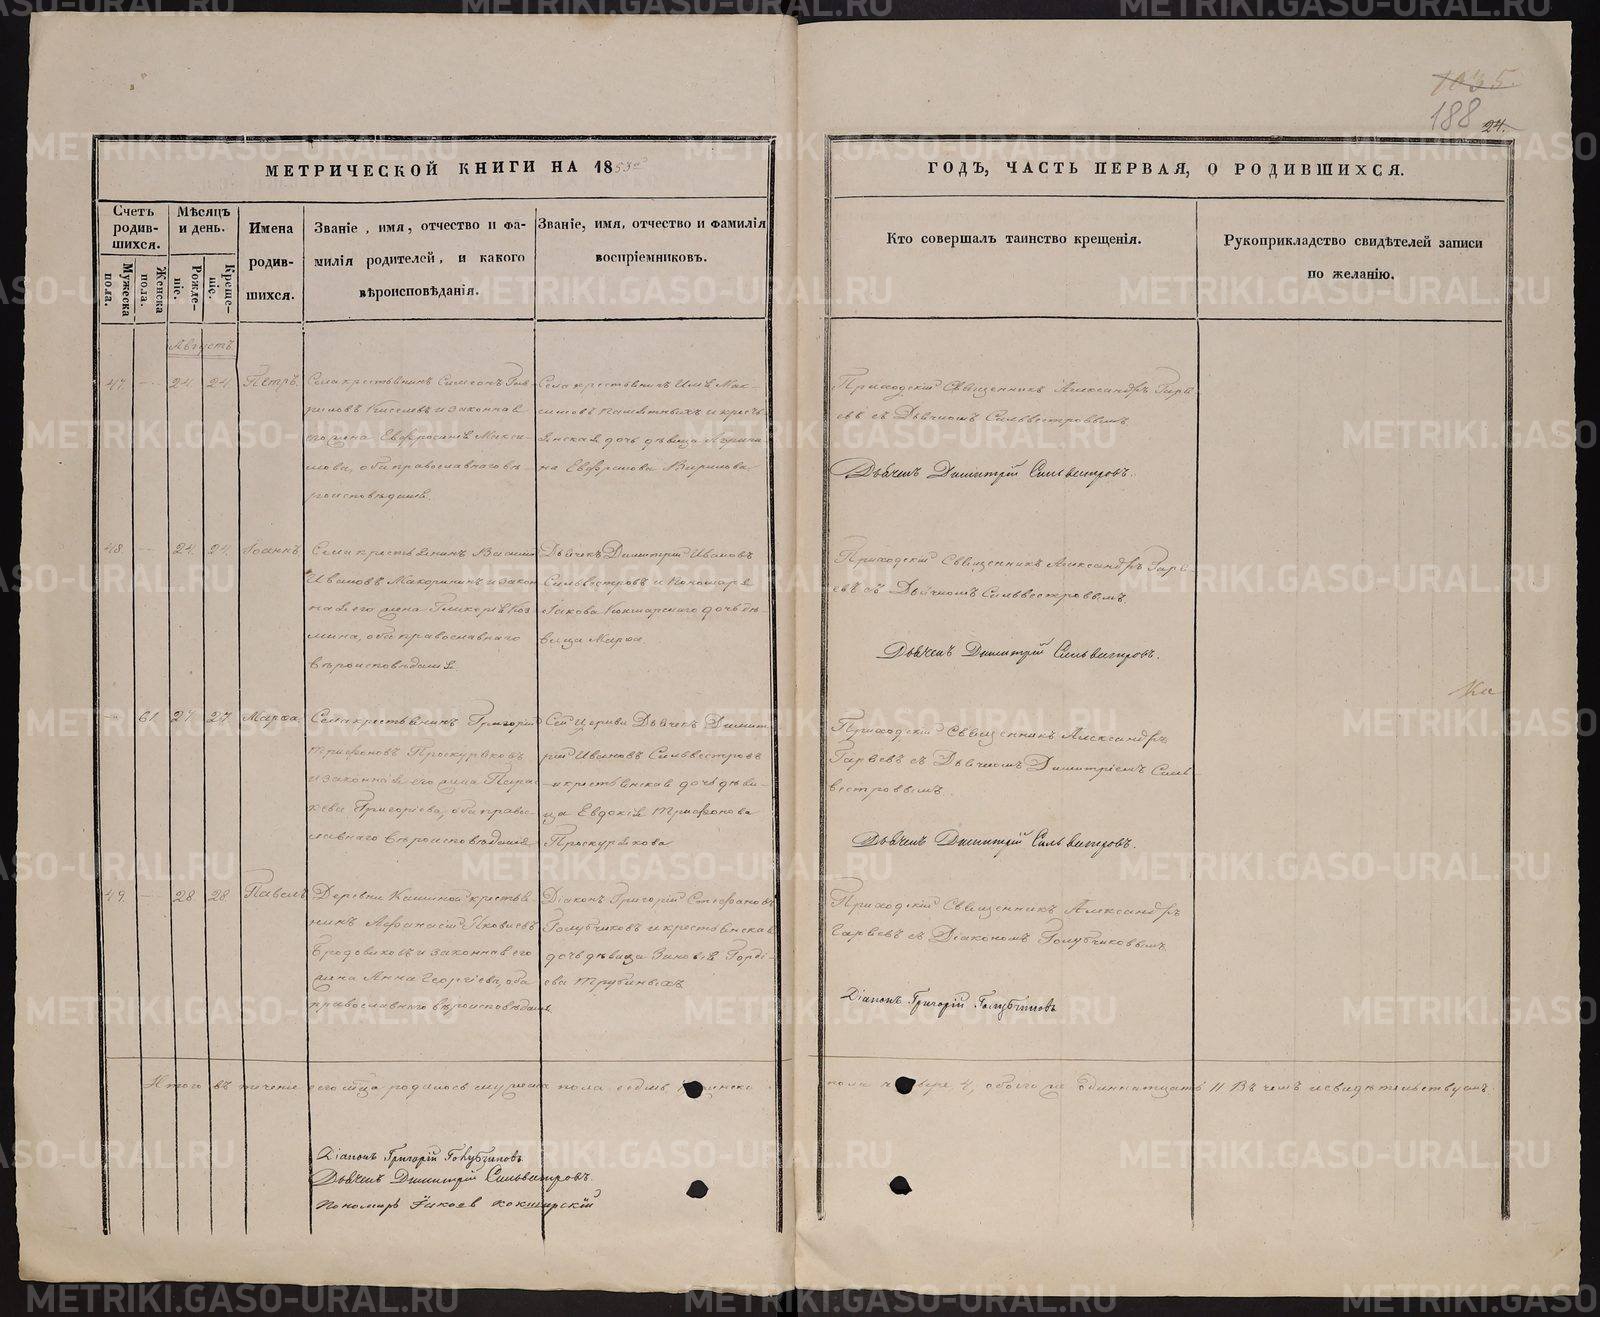 1035.
188
24.
МЕТРИЧЕСКОЙ КНИГИ НА 1853й
ГОДЪ, ЧАСТЬ ПЕРВАЯ, О РОДИВШИХСЯ.
Счетъ родив-шихся.
Мужеска пола.
Женска пола.
Мѣсяцъ и день.
Рожде-ніе.
Креще-ніе.
Имена родив-шихся.
Званіе, имя, отчество и фа-
милія родителей, и какого
вѣроисповѣданія.
Званіе, имя, отчество и фамилія
воспріемниковъ.
Кто совершалъ таинство крещенія.
Рукоприкладство свидѣтелей записи
по желанію.
Августъ
47. 24. 24. Петръ.
Села крестьянинъ Симеонъ Гав-
риловъ Киселевъ и законная
его жена Евфросинія Макси-
мова, оба православнаго вѣ-
роисповѣданія.
Села крестьянинъ
и кресть-
янская дочь дѣвица
Приходскій Священникъ Александръ Гаря-
евъ съ Дьячкомъ Сильвестровымъ.
Дьячекъ Димитрій Сильвестровъ.
48. 24. 24. Іоаннъ
Села крестьянинъ Василій
Ивановъ Макоринъ и закон-
ная его жена Гликерія Коз-
мина, оба православнаго
вѣроисповѣданія.
Дьячекъ Димитрій Ивановъ
Сильвестровъ и Пономаря
Іакова Кокшарскаго дочь дѣ-
вица Марѳа.
Приходскій Священникъ Александръ Гаря-
евъ съ Дьячкомъ Сильвестровымъ.
Дьячекъ Димитрій Сильвестровъ.
61. 27. 27. Марѳа
Села крестьянинъ Григорій
Трифоновъ Проскуряковъ
и законная его жена Парас-
кева Григорьева, оба право-
славнаго вѣроисповѣданія.
Сей церкви Дьячекъ Димит-
рій Ивановъ Сильвестровъ
и крестьянская дочь дѣви-
ца Евдокія Трифонова
Проскурякова
Приходскій Священникъ Александръ
Гаряевъ съ Дьячкомъ Димитріемъ Силь-
вестровымъ.
Дьячекъ Димитрій Сильвестровъ.
49. 28. 28. Павелъ
Деревни Кашиной крестья-
нинъ Аѳанасій Яковлевъ
Бродовиковъ и законная его
жена Анна Георгіева, оба
православнаго вѣроисповѣданія.
Діаконъ Григорій Стефановъ
Голубчиковъ и крестьянская
дочь дѣвица Зиновія Горді-
ева Трубиныхъ
Приходскій Священникъ Александръ
Гаряевъ съ Діакономъ Голубчиковымъ.
Діаконъ Григорій Голубчиковъ
Итого въ теченіе сего м-ца родилось мужеска пола седмь, женска
пола четыре 4, обоего пола одиннатцать 11 въ чемъ и свидѣтельствуемъ.
Діаконъ Григорій Голубчиковъ
Дьячекъ Димитрій Сильвестровъ.
Пономарь Іаковъ Кокшарскій
METRIKI.GASO-URAL.RU